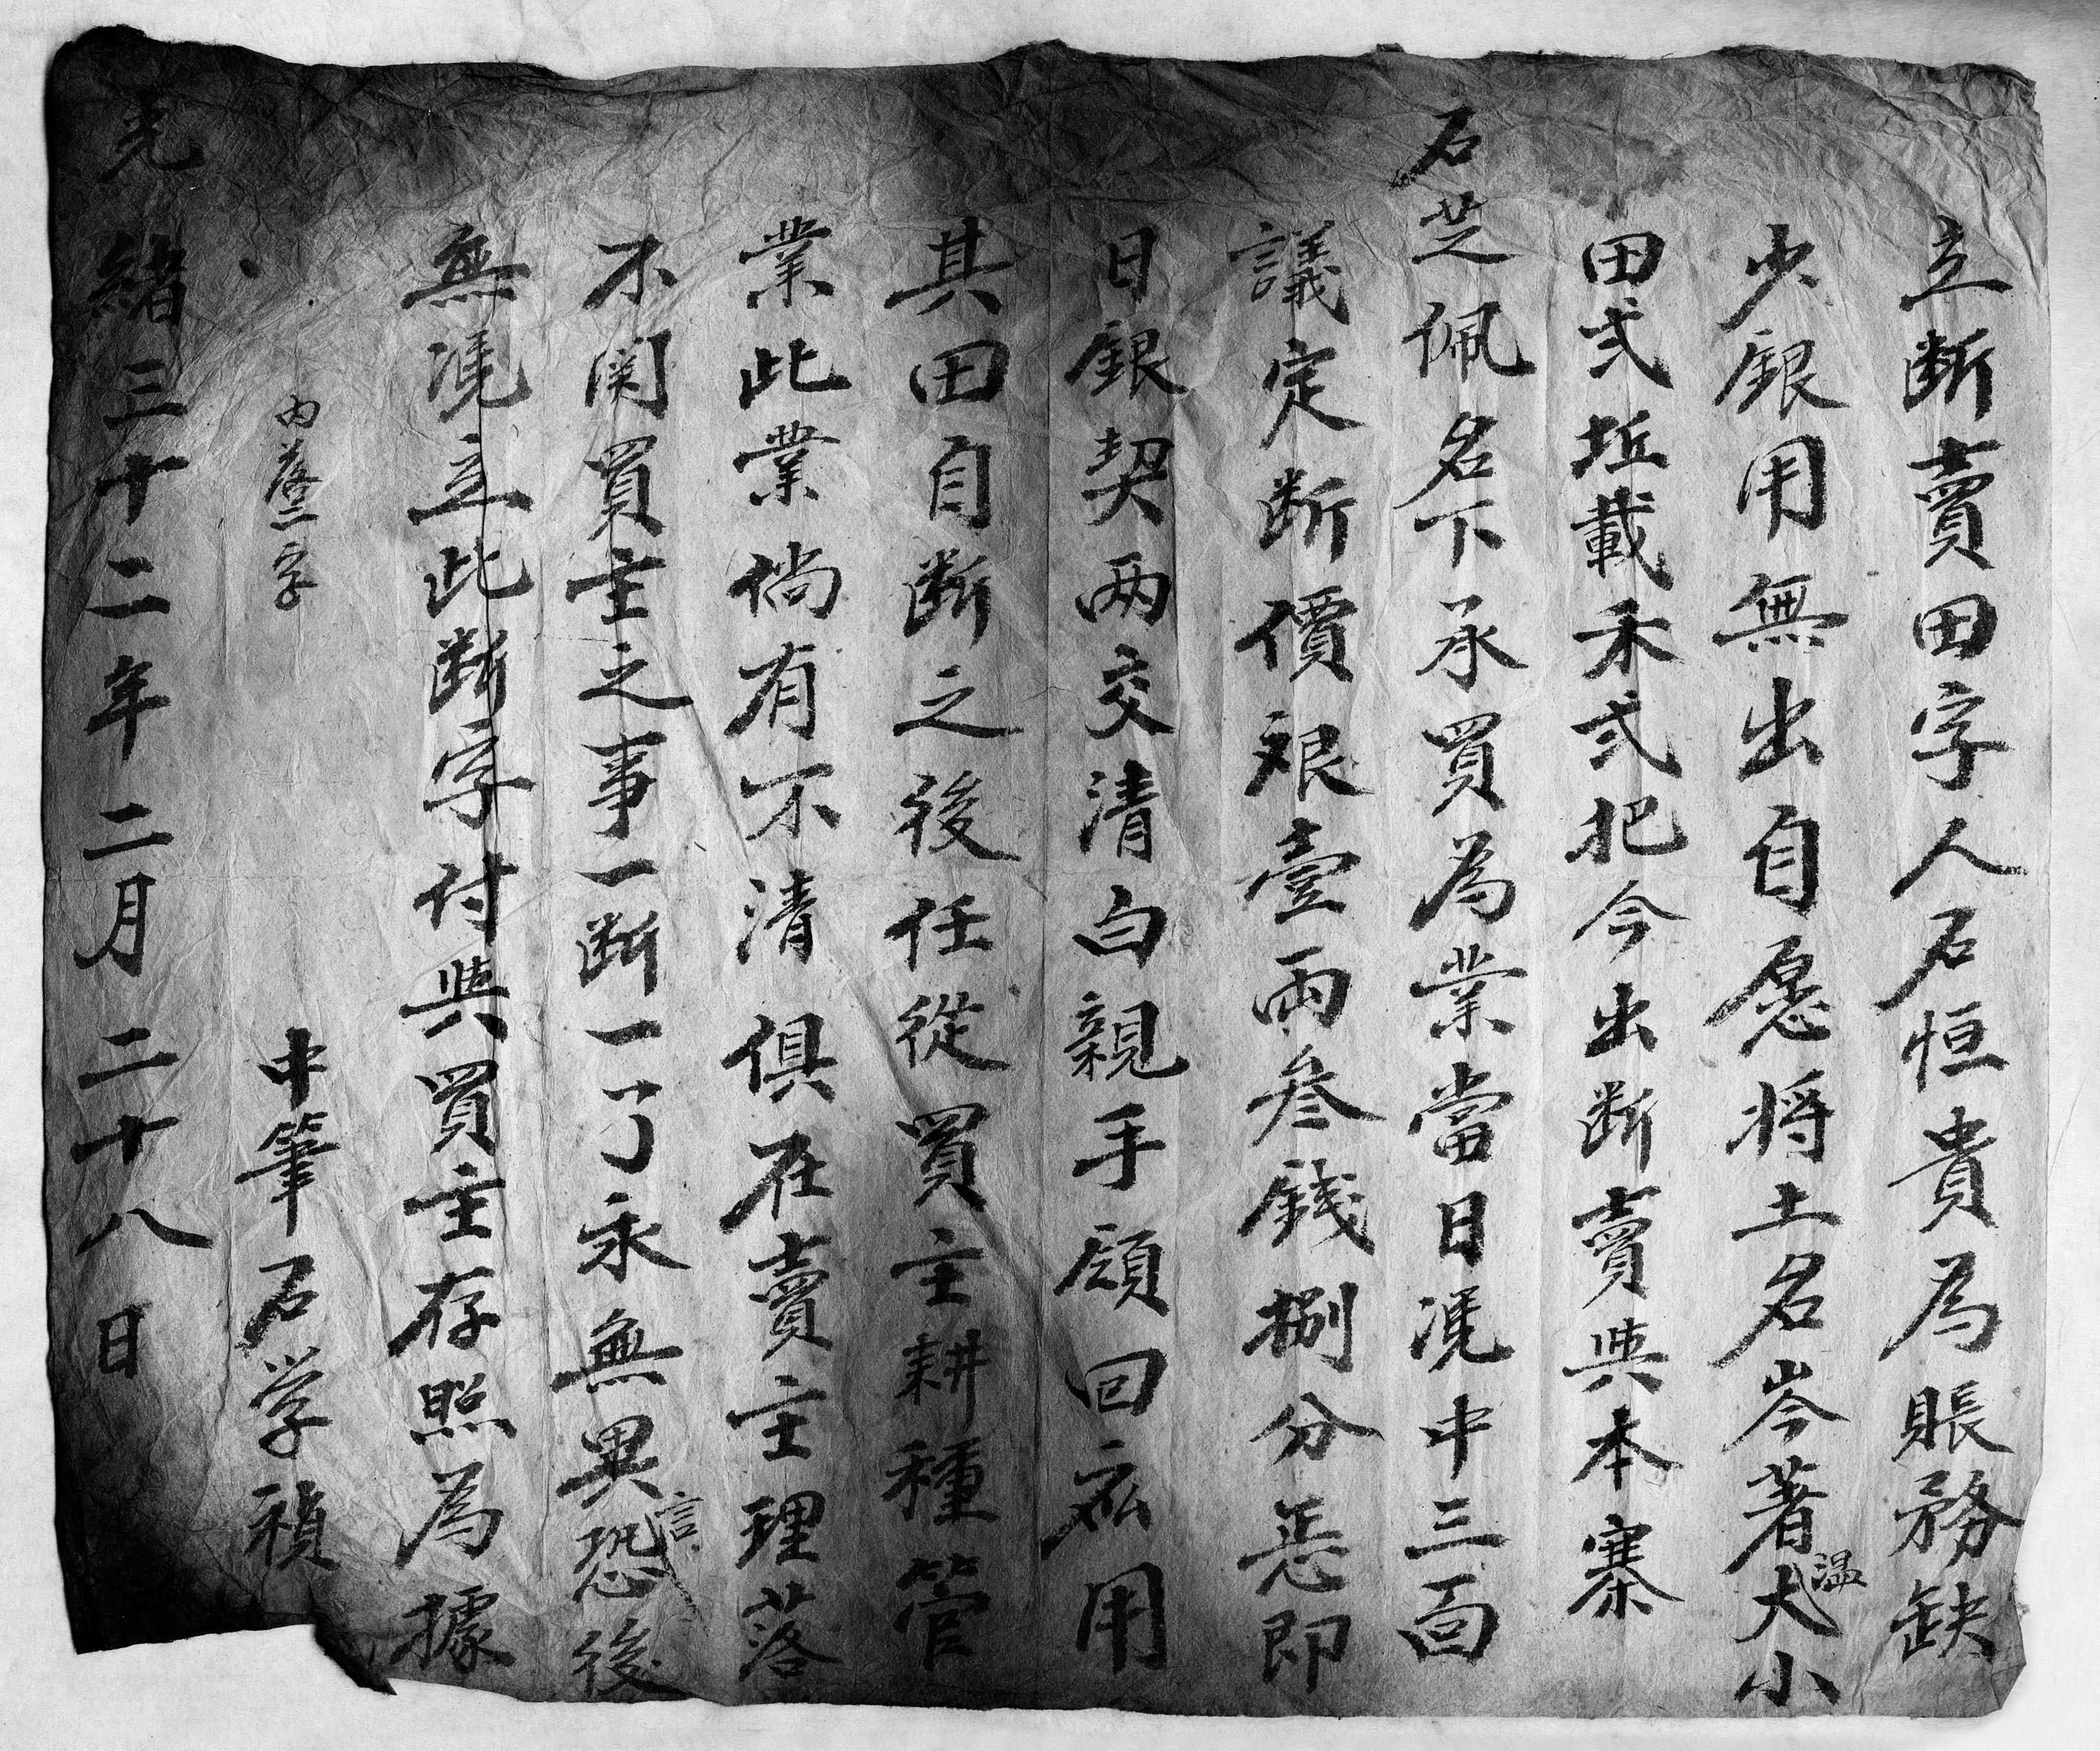 立断賣田字人石恒貴為賬務缺
少銀用無出自愿将土名岑著温大小
田弍坵載禾弍把今出断賣與本寨
石芝佩名下承買為業當日凴中三面
議定断價艮壹両叁錢捌分恁即
日銀契两交清白親手領回應用
其田自断之後任從買主耕種管
業此業倘有不清俱在賣主理落
不関買主之事一断一了永無異言恐後
無凴立此断字付與買主存照為據
内落二字
中筆石学禎
光緒三十二年二月二十八日